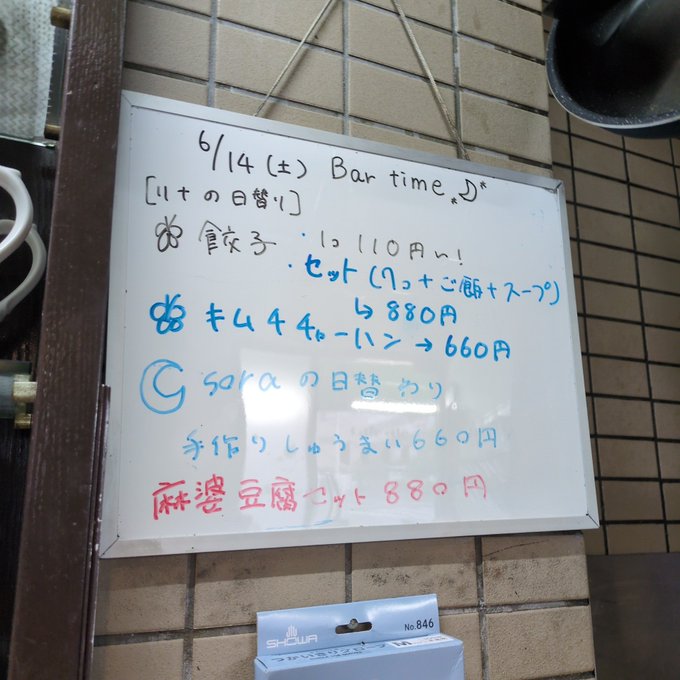 6/14(土) Bar time
[リナの日替り]
餃子 ・1コ110円い!
・セット(7コ+ご飯+スープ)
↳880円
キムチチャーハン→660円
soraの日替わり
手作りしゅうまい660円
麻婆豆腐セット880円
SHOWA
No.846